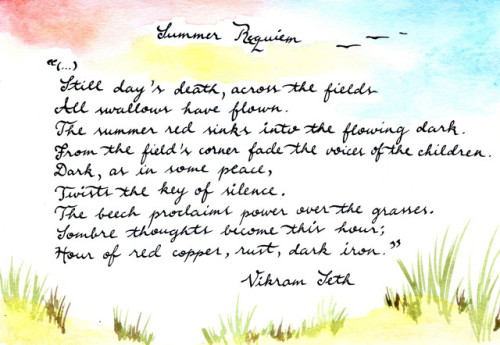 Summer Requiem
"(...)
Still day's death, across the fields
All swallows have flown.
The summer red sinks into the flowing dark.
From the field's corner fade the voices of the children.
Dark, as in some peace,
Twists the key of silence.
The beech proclaims power over the grasses.
Sombre thoughts become this hour;
Hour of red copper, rust, dark iron."
Vikram Seth